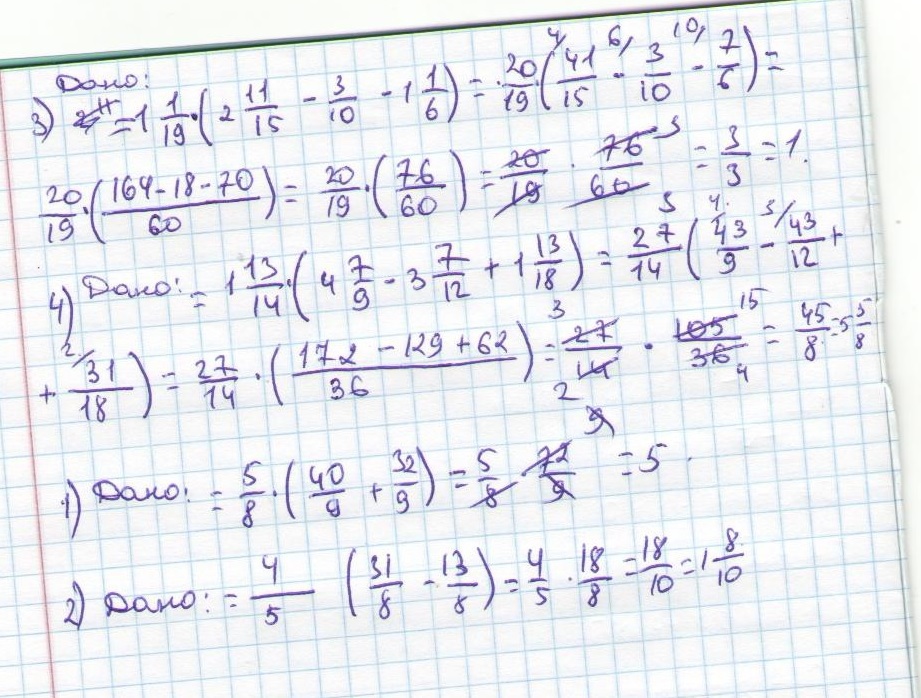 Дано:
3) = 1 1/19 · (2 11/15 - 3/10 - 1 1/6) = 20/19 (41/15 - 3/10 - 7/6) =
20/19 · (164-18-70/60) = 20/19 · (76/60) = 20/19 · 76/60 = 3/3 = 1.
4) Дано: = 1 13/14 · (4 7/9 - 3 7/12 + 1 13/18) = 27/14 (43/9 - 43/12 +
+ 31/18) = 27/14 · (172 - 129 + 62/36) = 27/14 · 105/36 = 45/8 = 5 5/8
1) Дано: = 5/8 · (40/9 + 32/9) = 5/8 72/9 = 5.
2) Дано: = 4/5 (31/8 - 13/8) = 4/5 · 18/8 = 18/10 = 1 8/10